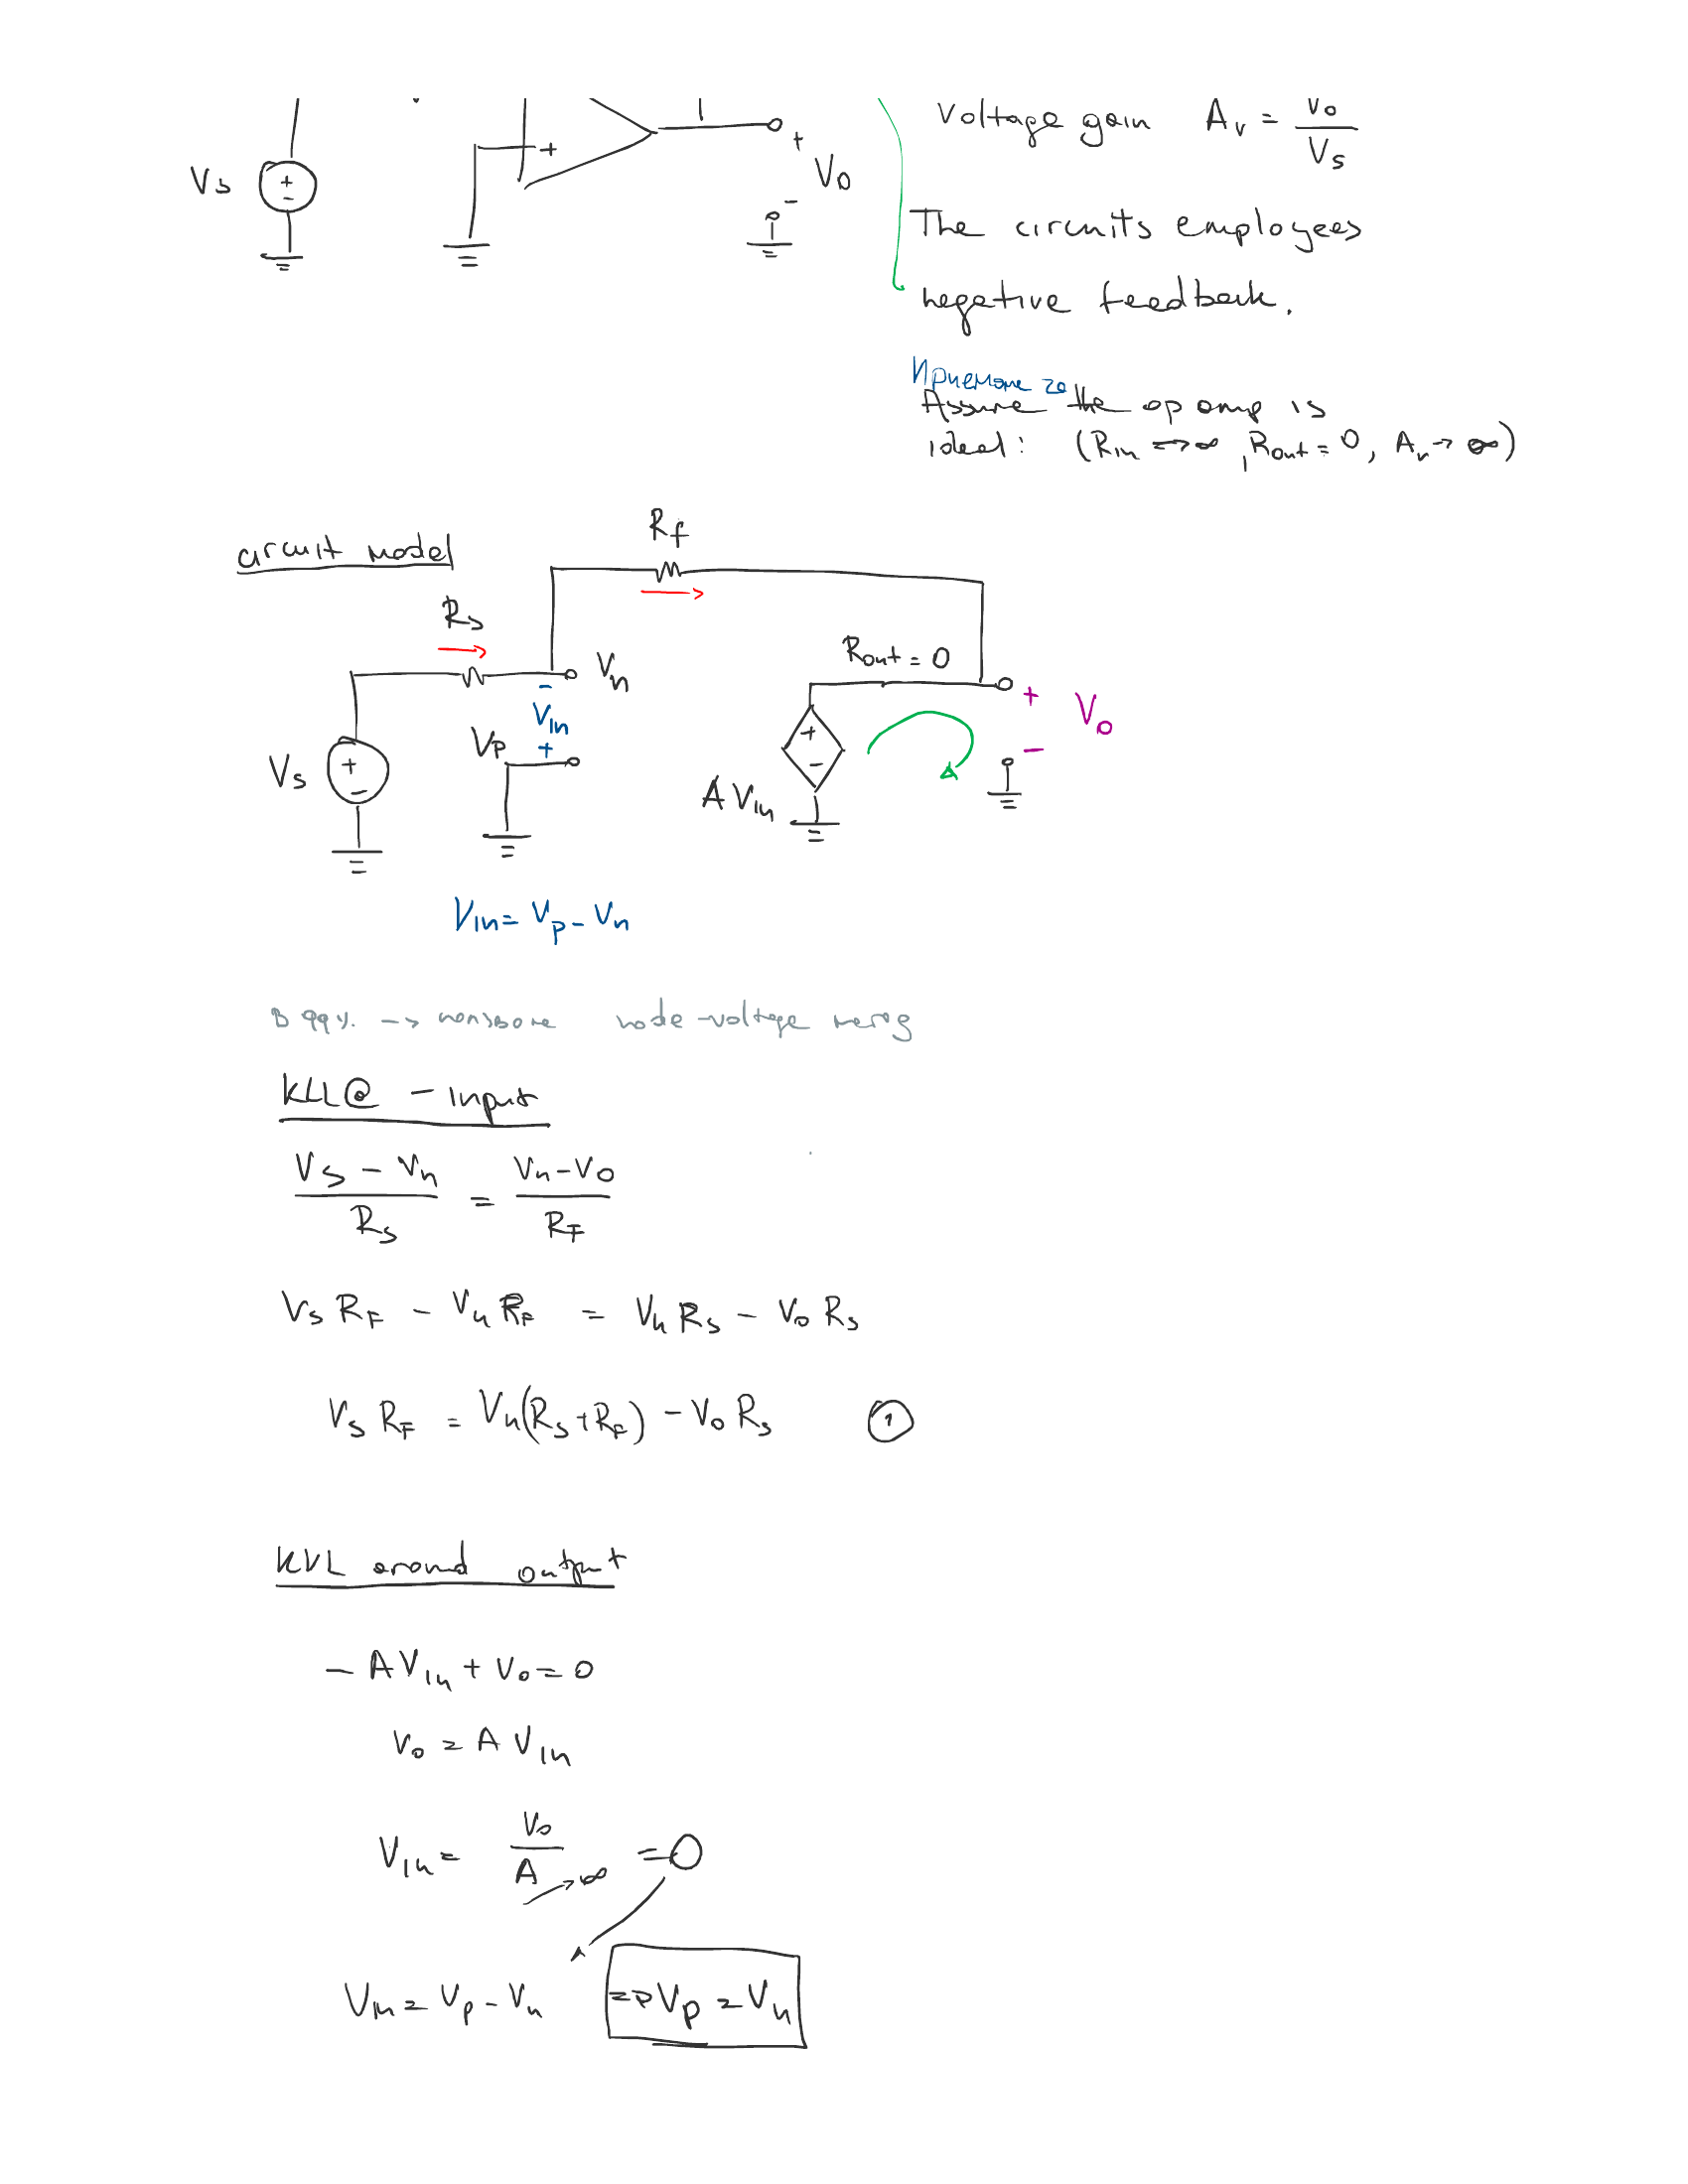 Voltage gain Av = Vo / Vs
Vs + - + + Vo -
The circuits employees
negative feedback.
Приемаме че
Assume the op amp is
ideal: (Rin → ∞, Rout = 0, Av → ∞)
circuit model
Rf
Rs
Rout = 0
Vn
- Vin +
Vp
+ Vo -
Vs + -
+ -
A Vin
Vin = Vp - Vn
--> node-voltage метод
KCL @ - input
(Vs - Vn) / Rs = (Vn - Vo) / RF
Vs RF - Vn RF = Vn Rs - Vo Rs
Vs RF = Vn(Rs + RF) - Vo Rs ①
KVL around output
- A Vin + Vo = 0
Vo = A Vin
Vin = Vo / A → ∞ = 0
Vin = Vp - Vn => Vp = Vn